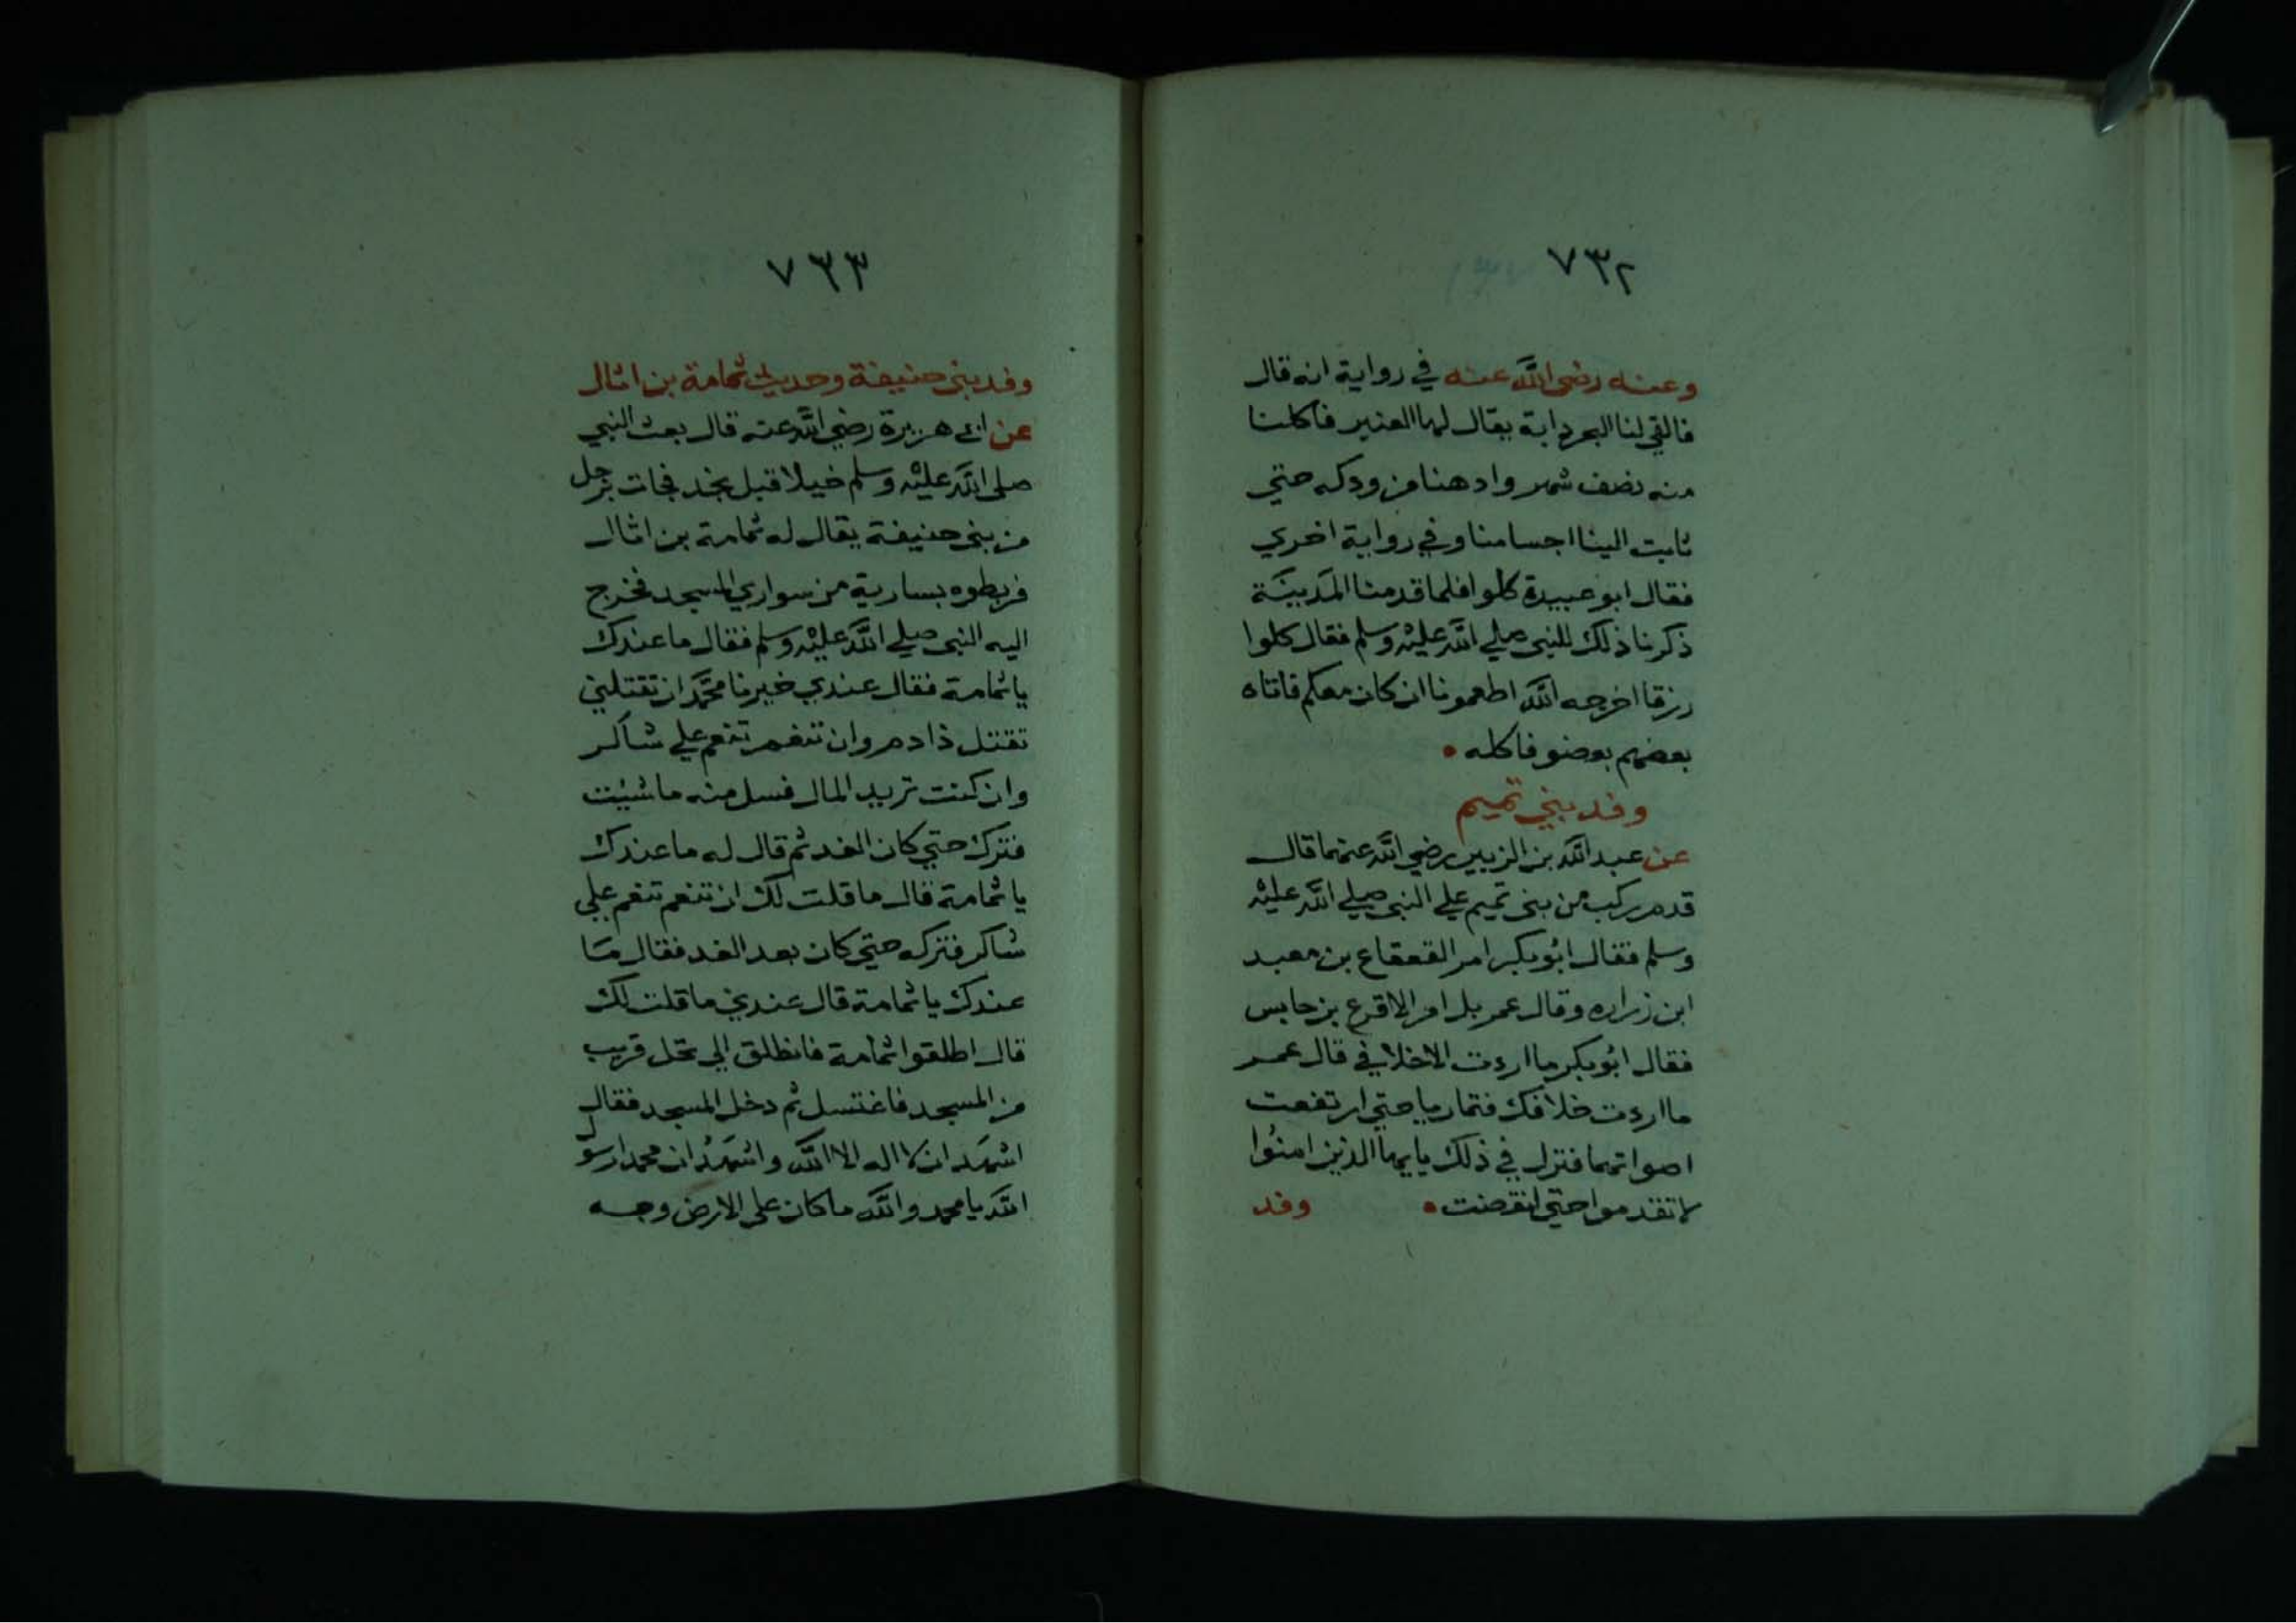 ٧٣٢
وعنه رضي الله عنه في رواية انه قال
فالقي لنا البحر دابة يقال لها العنبر فاكلنا
منه نصف شهر وادهنا من ودكه حتي
ثابت الينا اجسامنا وفي رواية اخري
فقال ابو عبيدة كلوا فلما قدمنا المدينة
ذكرنا ذلك للنبي صلي الله عليه وسلم فقال كلوا
رزقا اخرجه الله اطعمونا ان كان معكم فاتاه
بعضهم بعضو فاكله
وفد بني تميم
عن عبد الله بن الزبير رضي الله عنهما قال
قدم ركب من بني تميم علي النبي صلي الله عليه
وسلم فقال ابو بكر امر القعقاع بن معبد
ابن زراره وقال عمر بل امر الاقرع بن حابس
فقال ابو بكر ما اردت الا خلافي قال عمر
ما اردت خلافك فتماريا حتي ارتفعت
اصواتهما فنزل في ذلك يايها الذين امنوا
لا تقدموا حتي انقضت وفد
٧٣٣
وفد بني حنيفة وحديث ثمامة بن اثال
عن ابي هريرة رضي الله عنه قال بعث النبي
صلي الله عليه وسلم خيلا قبل نجد فجات برجل
من بني حنيفة يقال له ثمامة بن اثال
فربطوه بسارية من سواري المسجد فخرج
اليه النبي صلي الله عليه وسلم فقال ما عندك
يا ثمامة فقال عندي خير يا محمد ان تقتلني
تقتل ذا دم وان تنعم تنعم علي شاكر
وان كنت تريد المال فسل منه ما شيئت
فترك حتي كان الغد ثم قال له ما عندك
يا ثمامة قال ما قلت لك ان تنعم تنعم علي
شاكر فتركه حتي كان بعد الغد فقال ما
عندك يا ثمامة قال عندي ما قلت لك
قال اطلقوا ثمامة فانطلق الي نخل قريب
من المسجد فاغتسل ثم دخل المسجد فقال
اشهد ان لا اله الا الله واشهد ان محمدا رسول
الله يا محمد والله ما كان علي الارض وجه